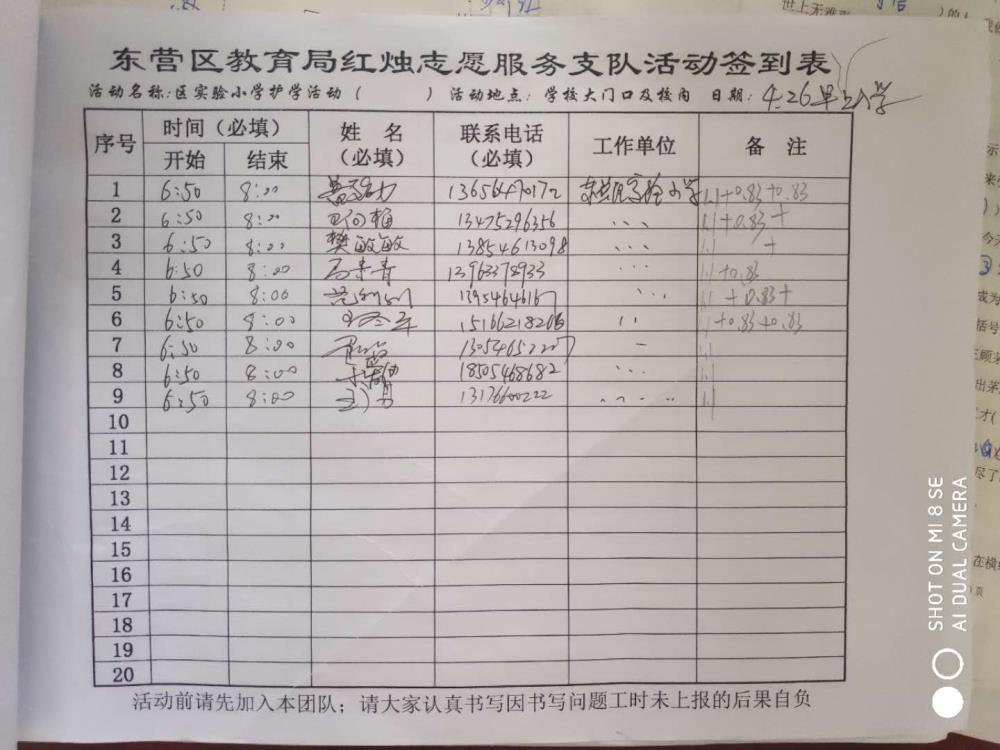 东营区教育局红烛志愿服务支队活动签到表
活动名称:区实验小学护学活动（ ）活动地点：学校大门口及校内 日期：4.26早上入学
序号 时间（必填） 姓 名（必填） 联系电话（必填） 工作单位 备 注
开始 结束
1 6:50 8:00 13656470172 1.1+0.83+0.83
2 6:50 8:00 13475296356 、、、 1.1+0.83+
3 6:50 8:00 樊敏敏 13854613098 、、、 1.1 +
4 6:50 8:00 13963378933 、、、 1.1+0.83
5 6:50 8:00 、、、 1.1+0.83+
6 6:50 8:00 15166218206 、、 1.1+0.83+0.83
7 6:50 8:00 1.1
8 6:50 8:00 18505468682 、、、 1.1
9 6:50 8:00 13176600222 1.1
10
11
12
13
14
15
16
17
18
19
20
活动前请先加入本团队；请大家认真书写因书写问题工时未上报的后果自负
SHOT ON MI 8 SE
AI DUAL CAMERA